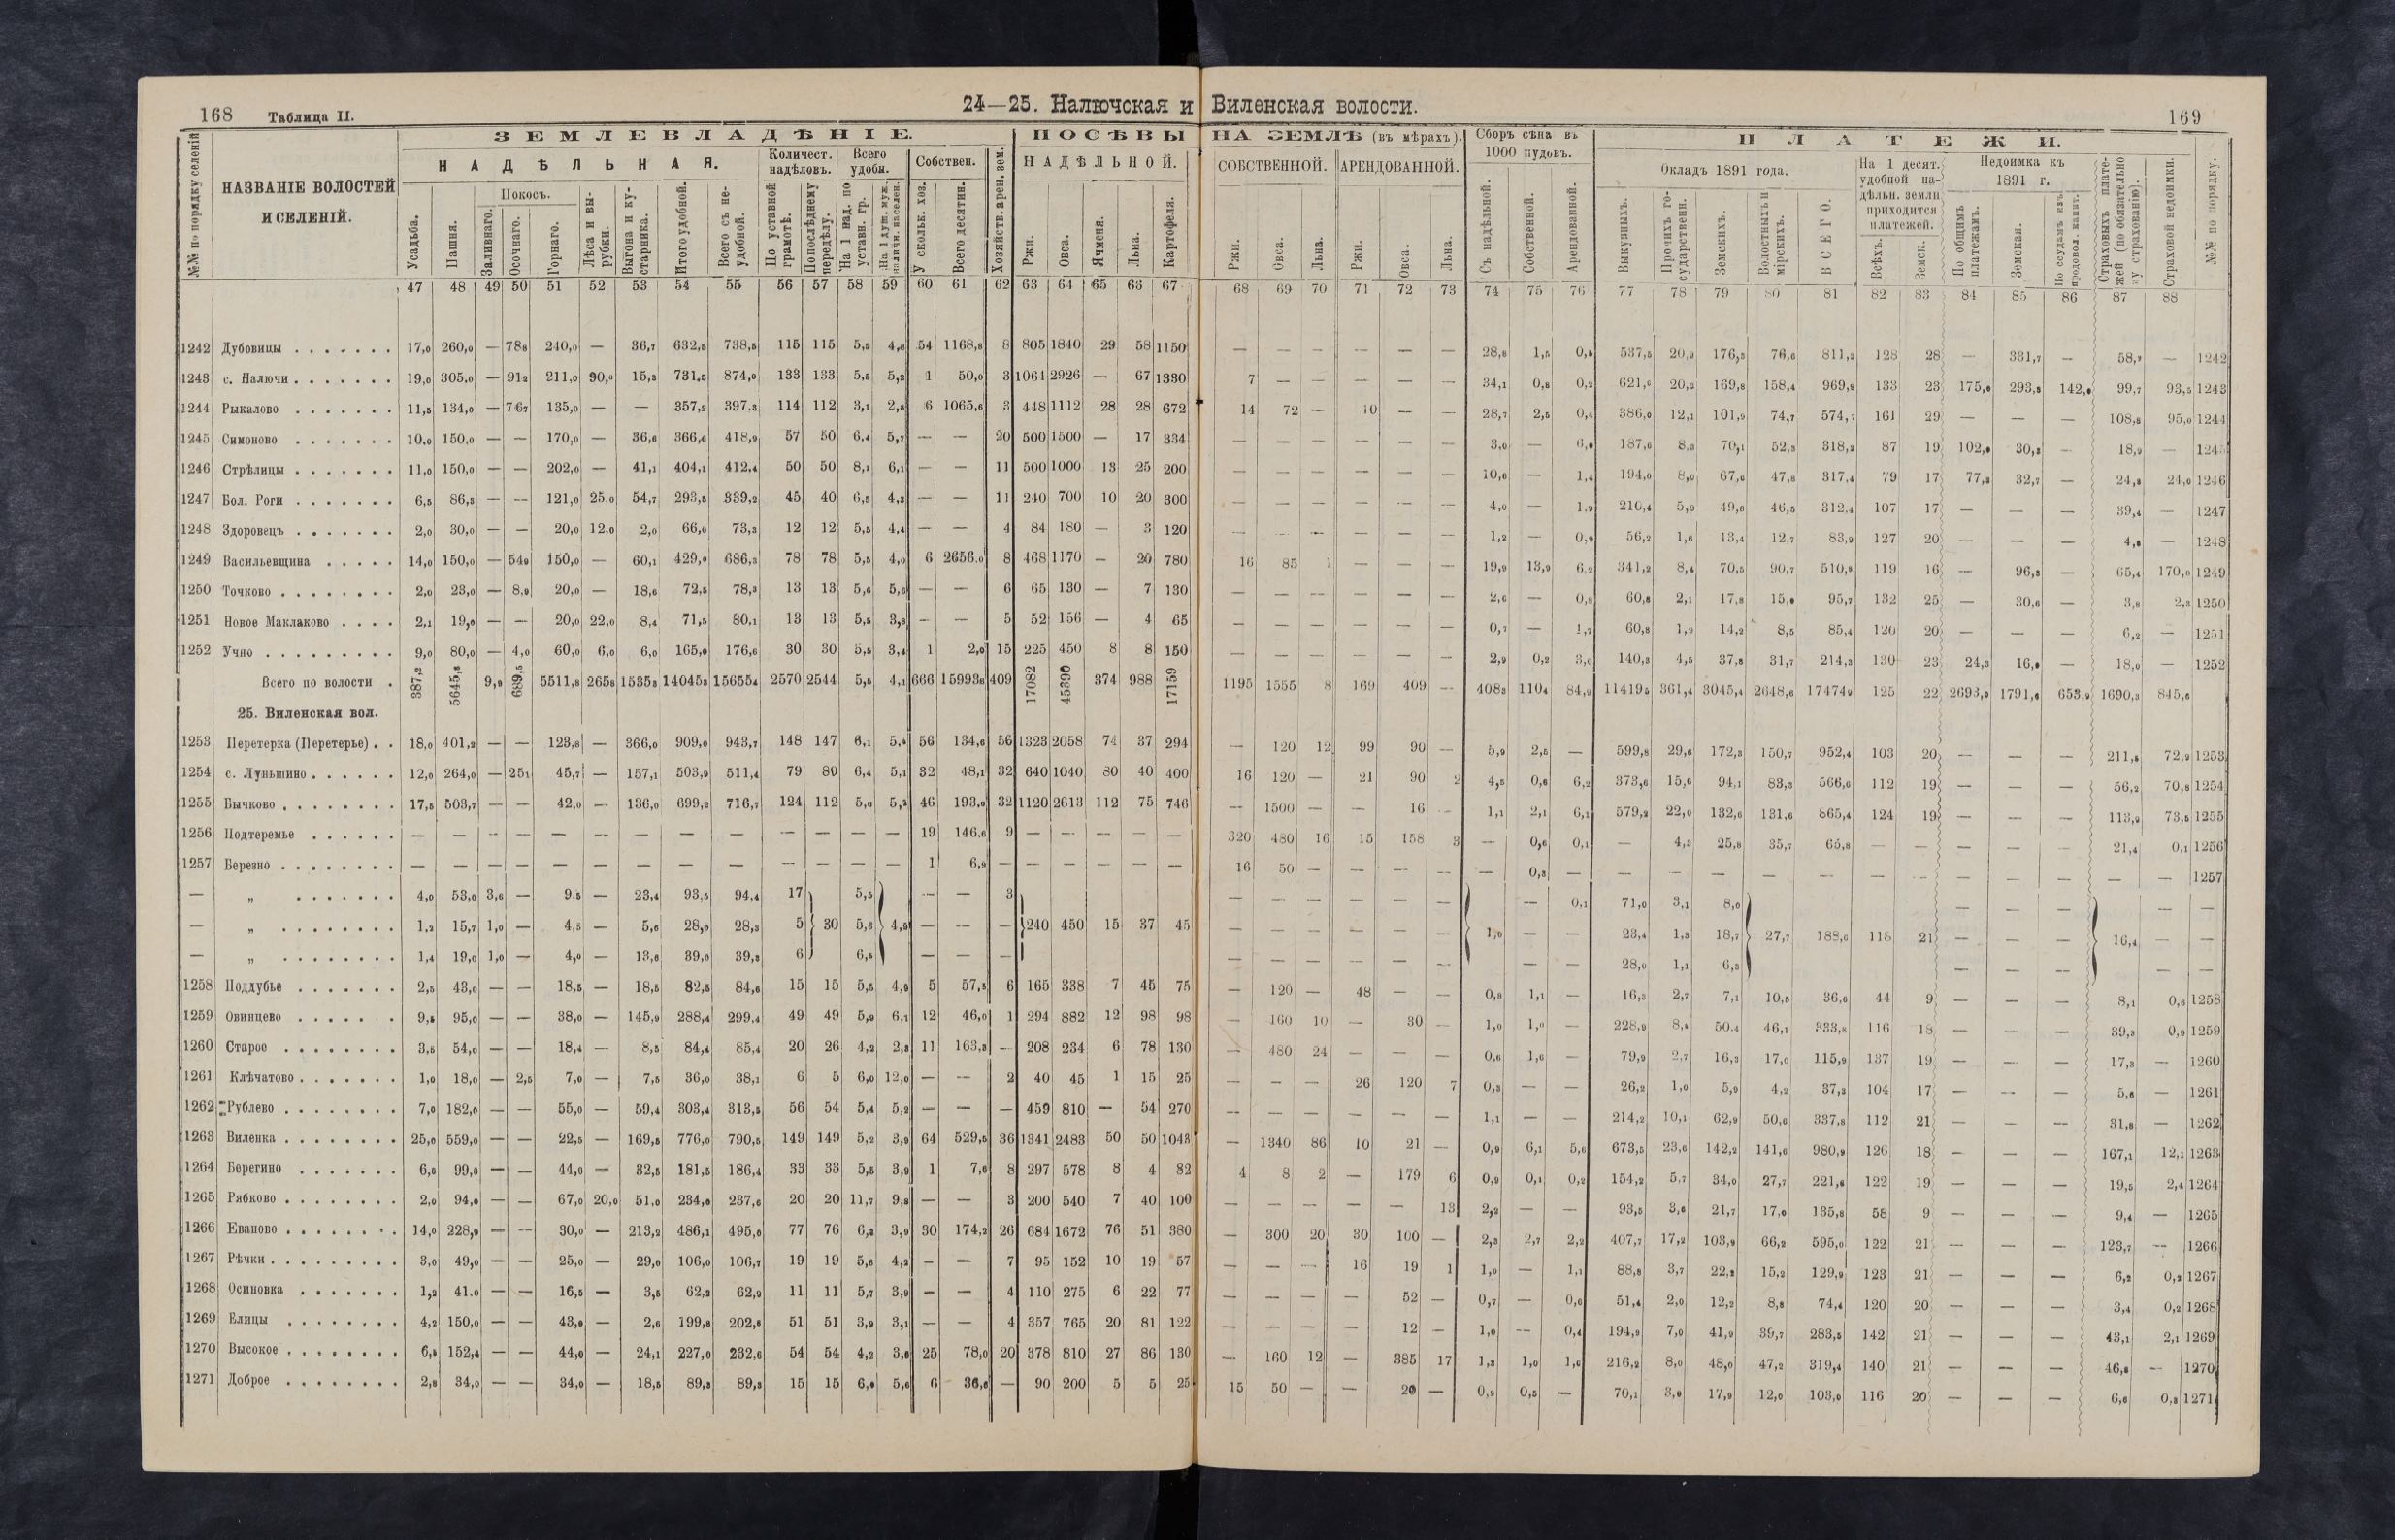 168 Таблица II. 24—25. Налючская и Виленская волости. 169
№№ по порядку селеній
НАЗВАНІЕ ВОЛОСТЕЙ И СЕЛЕНІЙ.
ЗЕМЛЕВЛАДѢНІЕ.
НАДѢЛЬНАЯ.
Усадьба. Пашня. Покосъ. Заливнаго. Осочнаго. Горнаго. Лѣса и вырубки. Выгона и кустарника. Итого удобной. Всего съ неудобной.
Количест. надѣловъ. По уставной грамотѣ. По послѣднему передѣлу.
Всего удобн. На 1 над. по уставн. гр.
Собствен. У скольк. хоз. Всего десятин. Хозяйств. арен. зем.
ПОСѢВЫ НА ЗЕМЛѢ (въ мѣрахъ).
НАДѢЛЬНОЙ. Ржи. Овса. Ячменя. Льна. Картофеля.
СОБСТВЕННОЙ. Ржи. Овса. Льна. АРЕНДОВАННОЙ. Ржи. Овса. Льна.
Сборъ сѣна въ 1000 пудовъ. Съ надѣльной. Собственной. Арендованной.
ПЛАТЕЖИ.
Окладъ 1891 года. Выкупныхъ. Прочихъ государственн. Земскихъ. Волостныхъ и мірскихъ. ВСЕГО.
На 1 десят. удобной надѣльн. земли приходится платежей. Всѣхъ. Земск.
Недоимка къ 1891 г. По общимъ платежамъ. Земская. По ссудамъ изъ продовол. капит.
Страховыхъ платежей (по обязательному страхованію). Страховой недоимки. №№ по порядку.
47 48 49 50 51 52 53 54 55 56 57 58 59 60 61 62 63 64 65 66 67 68 69 70 71 72 73 74 75 76 77 78 79 80 81 82 83 84 85 86 87 88
1242 Дубовицы 17,0 260,0 — 78,8 240,0 — 36,7 632,5 738,5 115 115 5,5 4,6 54 1168,8 8 805 1840 29 58 1150 — — — — — — 28,8 1,5 0,8 537,5 20,9 176,3 76,6 811,3 128 28 — 331,7 — 58,7 — 1242
1243 с. Налючи 19,0 305,0 — 91,2 211,0 90,0 15,3 731,5 874,0 133 133 5,5 5,2 1 50,0 3 1064 2926 — 67 1330 7 — — — — — 34,1 0,8 0,2 621,6 20,2 169,8 158,4 969,9 133 23 175,0 293,8 142,0 99,7 93,5 1243
1244 Рыкалово 11,5 134,0 — 76,7 135,0 — — 357,2 397,3 114 112 3,1 2,8 6 1065,6 3 448 1112 28 28 672 14 72 — 10 — — 28,7 2,5 0,4 386,0 12,1 101,9 74,7 574,7 161 29 — — — 108,8 95,0 1244
1245 Симоново 10,0 150,0 — — 170,0 — 36,6 366,6 418,9 57 50 6,4 5,7 — — 20 500 1500 — 17 334 — — — — — — 3,0 — 6,0 187,6 8,3 70,1 52,3 318,2 87 19 102,0 30,3 — 18,9 — 1245
1246 Стрѣлицы 11,0 150,0 — — 202,0 — 41,1 404,1 412,4 50 50 8,1 6,1 — — 11 500 1000 13 25 200 — — — — — — 10,6 — 1,4 194,0 8,0 67,6 47,8 317,4 79 17 77,3 32,7 — 24,8 24,0 1246
1247 Бол. Роги 6,5 86,3 — — 121,0 25,0 54,7 293,5 339,2 45 40 6,5 4,3 — — 11 240 700 10 20 300 — — — — — — 4,0 — 1,9 210,4 5,9 49,6 46,5 312,4 107 17 — — — 39,4 — 1247
1248 Здоровецъ 2,0 30,0 — — 20,0 12,0 2,0 66,0 73,3 12 12 5,5 4,4 — — 4 84 180 — 3 120 — — — — — — 1,2 — 0,9 56,2 1,6 13,4 12,7 83,9 127 20 — — — 4,8 — 1248
1249 Васильевщина 14,0 150,0 — 54,9 150,0 — 60,1 429,0 686,3 78 78 5,5 4,0 6 2656,0 8 468 1170 — 20 780 16 85 1 — — — 19,9 13,9 6,2 341,2 8,4 70,5 90,7 510,8 119 16 — 96,3 — 65,4 170,0 1249
1250 Точково 2,0 23,0 — 8,9 20,0 — 18,6 72,5 78,3 13 13 5,6 5,6 — — 6 65 130 — 7 130 — — — — — — 2,6 — 0,8 60,8 2,1 17,8 15,0 95,7 132 25 — 30,6 — 3,8 2,3 1250
1251 Новое Маклаково 2,1 19,0 — — 20,0 22,0 8,4 71,5 80,1 13 13 5,5 3,8 — — 5 52 156 — 4 65 — — — — — — 0,7 — 1,7 60,8 1,9 14,2 8,5 85,4 120 20 — — — 6,2 — 1251
1252 Учно 9,0 80,0 — 4,0 60,0 6,0 6,0 165,0 176,6 30 30 5,5 3,4 1 2,0 15 225 450 8 8 150 — — — — — — 2,9 0,2 3,0 140,3 4,5 37,8 31,7 214,3 130 23 24,3 16,0 — 18,0 — 1252
Всего по волости 387,2 5645,8 9,9 689,5 5511,8 265,8 1535,3 14045,3 15655,4 2570 2544 5,5 4,1 666 15993,8 409 17082 45390 374 988 17159 1195 1555 8 169 409 — 408,3 110,4 84,9 11419,5 361,4 3045,4 2648,6 17474,9 125 22 2693,0 1791,6 653,9 1690,3 845,6
25. Виленская вол.
1253 Перетерка (Перетерье) 18,0 401,2 — — 123,8 — 366,0 909,0 943,7 148 147 6,1 5,4 56 134,6 56 1323 2058 74 37 294 — 120 12 99 90 — 5,9 2,5 — 599,8 29,6 172,3 150,7 952,4 103 20 — — — 211,5 72,9 1253
1254 с. Луньшино 12,0 264,0 — 25,1 45,7 — 157,1 503,9 511,4 79 80 6,4 5,1 32 48,1 32 640 1040 80 40 400 16 120 — 21 90 2 4,5 0,6 6,2 373,6 15,6 94,1 83,3 566,6 112 19 — — — 56,2 70,8 1254
1255 Бычково 17,5 503,7 — — 42,0 — 136,0 699,2 716,7 124 112 5,6 5,3 46 193,0 32 1120 2613 112 75 746 — 1500 — — 16 — 1,1 2,1 6,1 579,2 22,0 132,6 131,6 865,4 124 19 — — — 113,9 73,5 1255
1256 Подтеремье — — — — — — — — — — — — — 19 146,6 9 — — — — — 320 480 16 15 158 3 — 0,6 0,1 — 4,3 25,8 35,7 65,8 — — — — — 21,4 0,1 1256
1257 Березно — — — — — — — — — — — — — 1 6,9 — — — — — — 16 50 — — — — — 0,3 — — — — — — — — — — — — — 1257
— „ 4,0 53,0 3,6 — 9,5 — 23,4 93,5 94,4 17 5,5 — — 3 — — — — — — — 0,1 71,0 3,1 8,0 — — — — —
— „ 1,2 15,7 1,0 — 4,5 — 5,6 28,0 28,3 5 30 5,6 4,5 — — — 240 450 15 37 45 — — — — — — 1,0 — — 23,4 1,3 18,7 27,7 188,6 118 21 — — — 16,4 — —
— „ 1,4 19,0 1,0 — 4,0 — 13,6 39,0 39,3 6 6,5 — — — — — — — — — — — 28,0 1,1 6,3 — — — — —
1258 Поддубье 2,5 43,0 — — 18,5 — 18,5 82,5 84,6 15 15 5,5 4,9 5 57,5 6 165 338 7 45 75 — 120 — 48 — — 0,8 1,1 — 16,3 2,7 7,1 10,5 36,6 44 9 — — — 8,1 0,6 1258
1259 Овинцево 9,5 95,0 — — 38,0 — 145,9 288,4 299,4 49 49 5,9 6,1 12 46,0 1 294 882 12 98 98 — 160 10 — 30 — 1,0 1,0 — 228,9 8,4 50,4 46,1 333,8 116 18 — — — 39,3 0,9 1259
1260 Старое 3,5 54,0 — — 18,4 — 8,5 84,4 85,4 20 26 4,2 2,3 11 163,3 — 208 234 6 78 130 — 480 24 — — — 0,6 1,6 — 79,9 2,7 16,3 17,0 115,9 137 19 — — — 17,3 — 1260
1261 Клѣчатово 1,0 18,0 — 2,5 7,0 — 7,5 36,0 38,1 6 5 6,0 12,0 — — 2 40 45 1 15 25 — — — 26 120 7 0,3 — — 26,2 1,0 5,9 4,2 37,3 104 17 — — — 5,6 — 1261
1262 Рублево 7,0 182,0 — — 55,0 — 59,4 303,4 313,5 56 54 5,4 5,2 — — — 459 810 — 54 270 — — — — — — 1,1 — — 214,2 10,1 62,9 50,6 337,8 112 21 — — — 31,8 — 1262
1263 Виленка 25,0 559,0 — — 22,5 — 169,5 776,0 790,5 149 149 5,2 3,9 64 529,5 36 1341 2483 50 50 1043 — 1340 86 10 21 — 0,9 6,1 5,6 673,5 23,6 142,2 141,6 980,9 126 18 — — — 167,1 12,1 1263
1264 Берегино 6,0 99,0 — — 44,0 — 32,5 181,5 186,4 33 33 5,5 3,9 1 7,6 8 297 578 8 4 82 4 8 2 — 179 6 0,9 0,1 0,2 154,2 5,7 34,0 27,7 221,6 122 19 — — — 19,5 2,4 1264
1265 Рябково 2,0 94,0 — — 67,0 20,0 51,0 234,0 237,6 20 20 11,7 9,8 — — 3 200 540 7 40 100 — — — — — 13 2,2 — — 93,5 3,6 21,7 17,0 135,8 58 9 — — — 9,4 — 1265
1266 Еваново 14,0 228,9 — — 30,0 — 213,2 486,1 495,0 77 76 6,3 3,9 30 174,2 26 684 1672 76 51 380 — 300 20 30 100 — 2,3 2,7 2,2 407,7 17,2 103,9 66,2 595,0 122 21 — — — 123,7 — 1266
1267 Рѣчки 3,0 49,0 — — 25,0 — 29,0 106,0 106,7 19 19 5,6 4,2 — — 7 95 152 10 19 57 — — — 16 19 1 1,0 — 1,1 88,8 3,7 22,2 15,2 129,9 123 21 — — — 6,2 0,3 1267
1268 Осиновка 1,2 41,0 — — 16,5 — 3,5 62,2 62,9 11 11 5,7 3,9 — — 4 110 275 6 22 77 — — — — 52 — 0,7 — 0,6 51,4 2,0 12,2 8,8 74,4 120 20 — — — 3,4 0,2 1268
1269 Елицы 4,2 150,0 — — 43,0 — 2,6 199,8 202,8 51 51 3,9 3,1 — — 4 357 765 20 81 122 — — — — 12 — 1,0 — 0,4 194,9 7,0 41,9 39,7 283,5 142 21 — — — 43,1 2,1 1269
1270 Высокое 6,5 152,4 — — 44,0 — 24,1 227,0 232,6 54 54 4,2 3,6 25 78,0 20 378 810 27 86 130 — 160 12 — 385 17 1,3 1,0 1,6 216,2 8,0 48,0 47,2 319,4 140 21 — — — 46,8 — 1270
1271 Доброе 2,8 34,0 — — 34,0 — 18,5 89,3 89,3 15 15 6,0 5,6 6 36,6 — 90 200 5 5 25 15 50 — — 20 — 0,9 0,5 — 70,1 3,0 17,9 12,0 103,0 116 20 — — — 6,6 0,8 1271